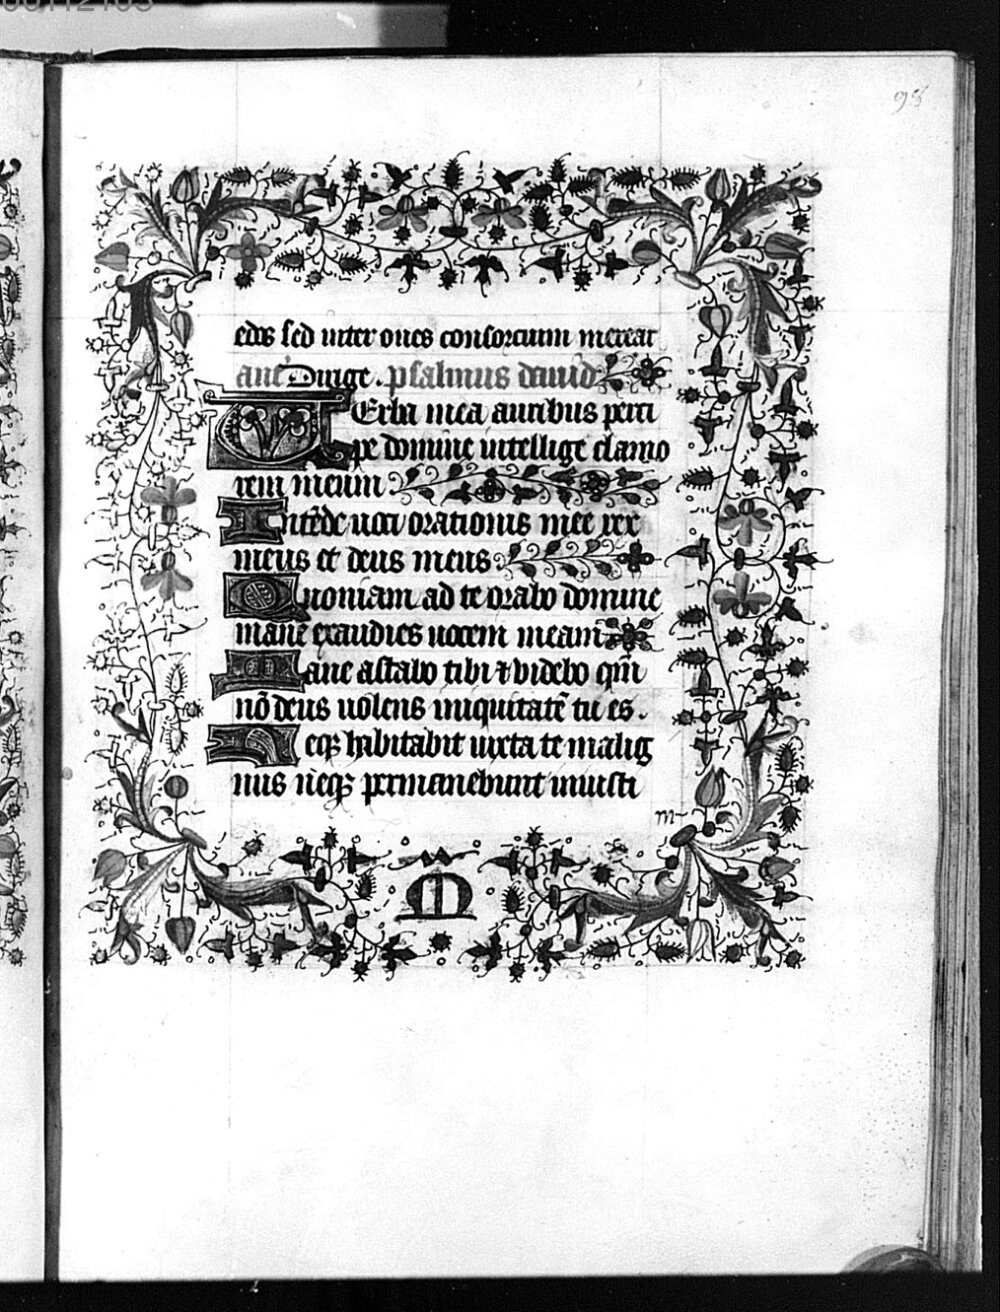 95
edos sed inter oues consorcium mereat
ane Dirige . psalmus dauid
VErba mea auribus perci
pe domine intellige clamo
rem meum
Intēde uoci orationis mee rex
meus et deus meus
Quoniam ad te orabo domine
mane exaudies uocem meam
Mane astabo tibi ⁊ videbo qm̄
nō deus uolens iniquitatē tu es .
Neqꝫ habitabit iuxta te malig
nus neqꝫ permanebunt iniusti
m
M